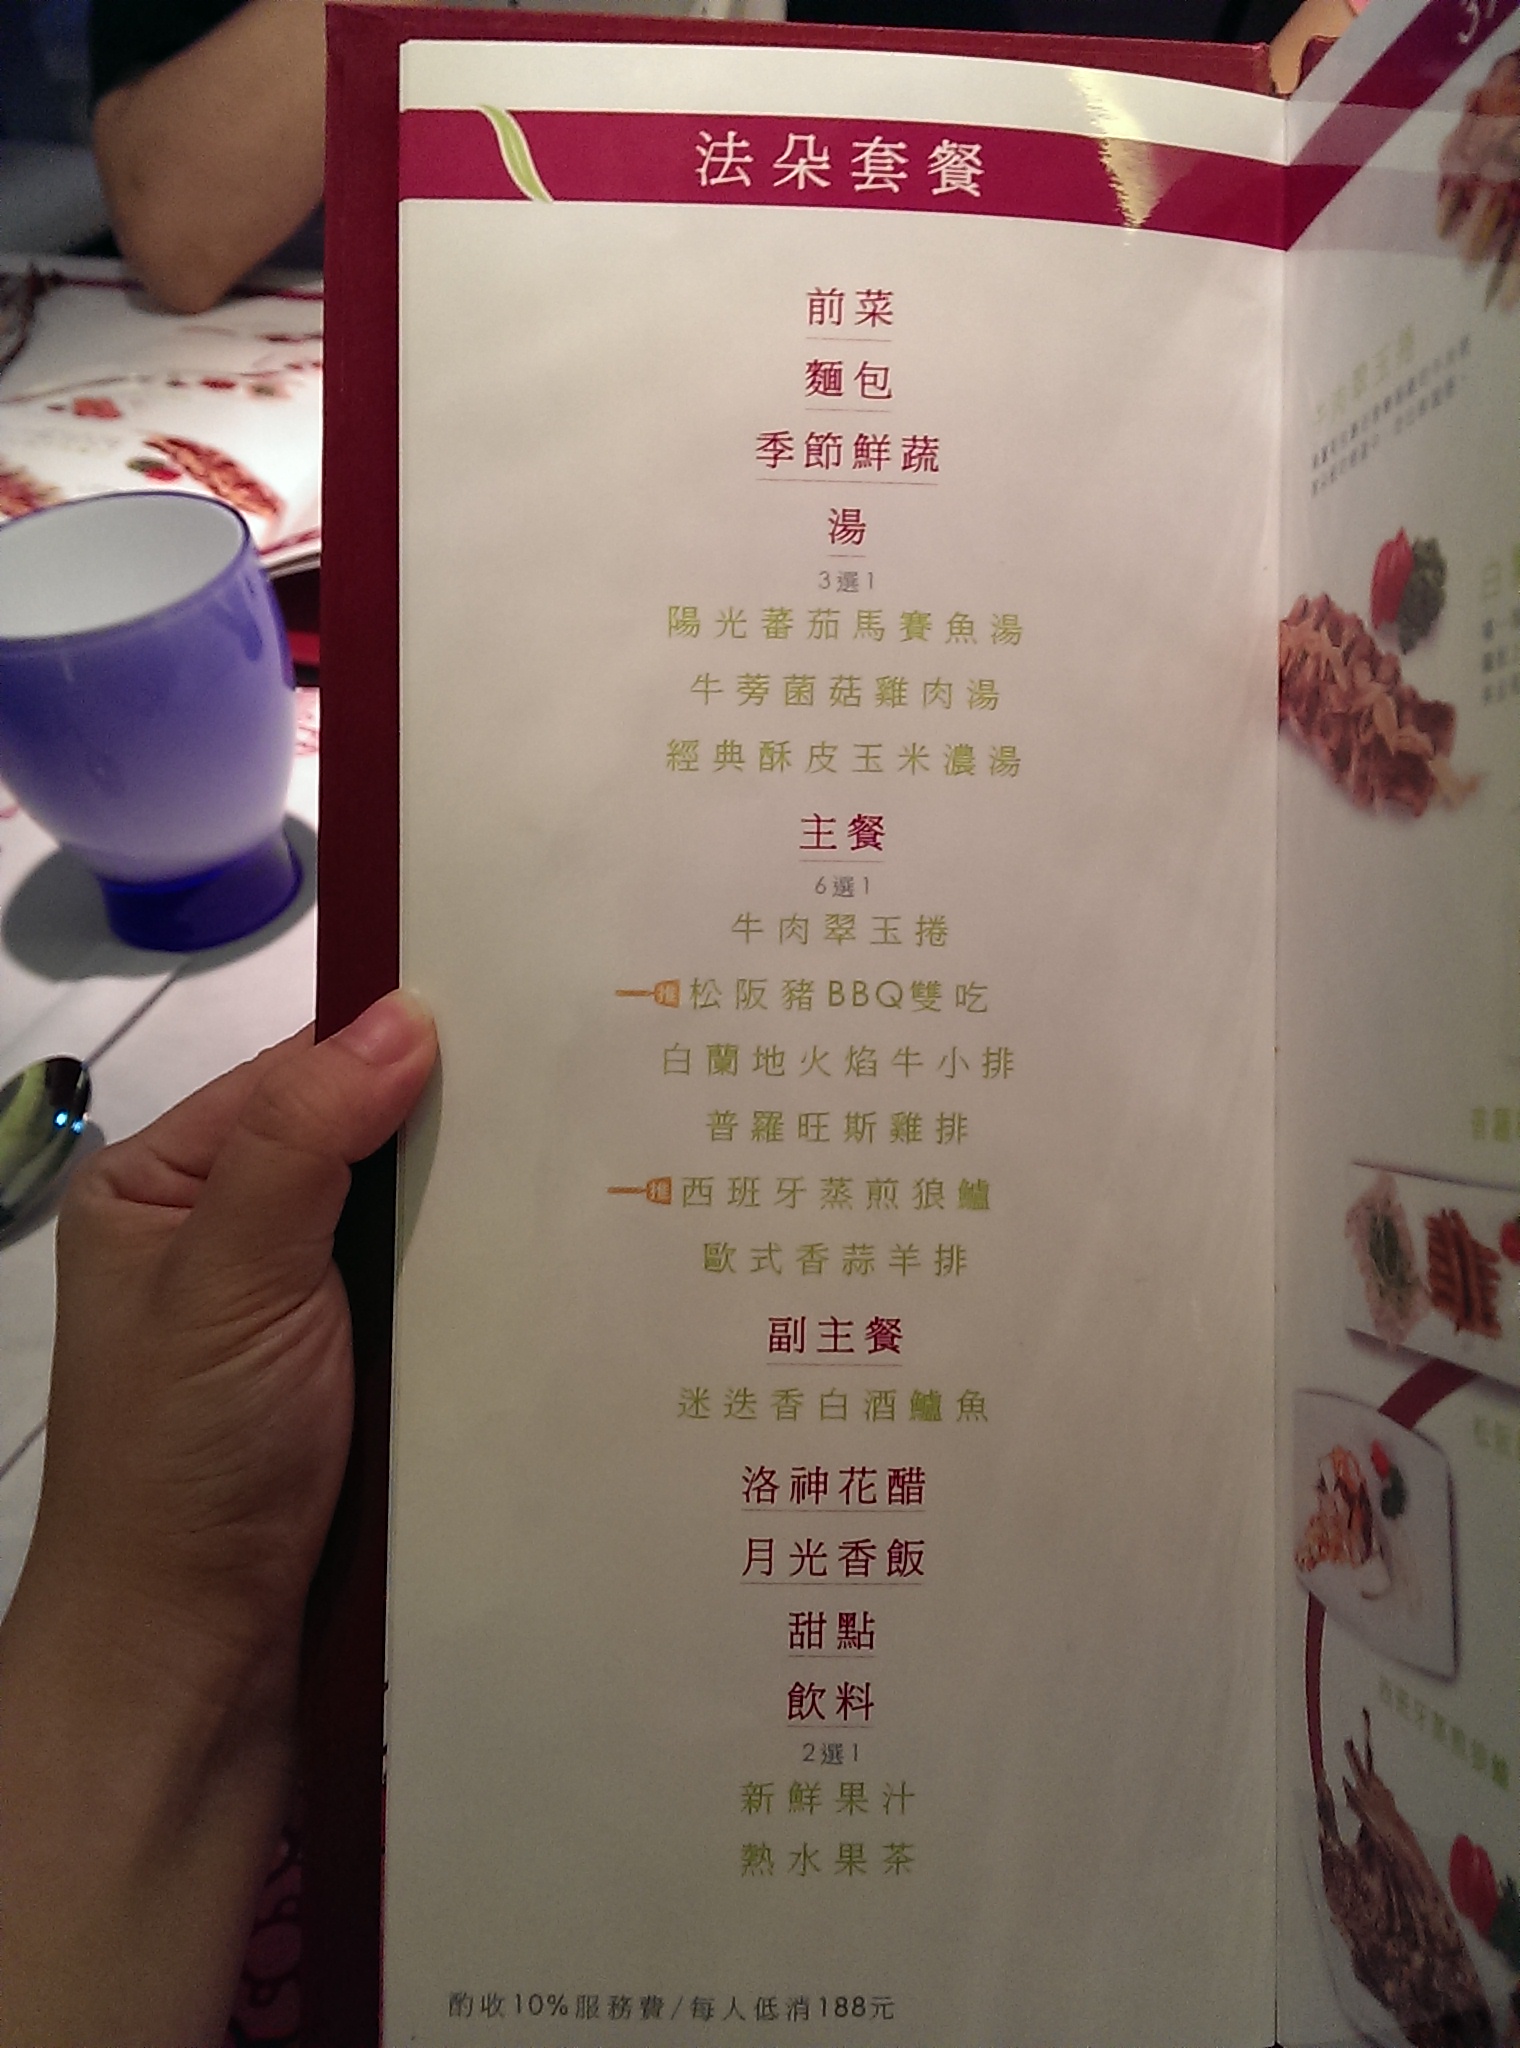 法朵套餐
前菜
麵包
季節鮮蔬
湯
3選1
陽光蕃茄馬賽魚湯
牛蒡菌菇雞肉湯
經典酥皮玉米濃湯
主餐
6選1
牛肉翠玉捲
推 松阪豬BBQ雙吃
白蘭地火焰牛小排
普羅旺斯雞排
推 西班牙蒸煎狼鱸
歐式香蒜羊排
副主餐
迷迭香白酒鱸魚
洛神花醋
月光香飯
甜點
飲料
2選1
新鮮果汁
熱水果茶
酌收10%服務費/每人低消188元
牛肉翠玉捲
西班牙蒸煎狼鱸